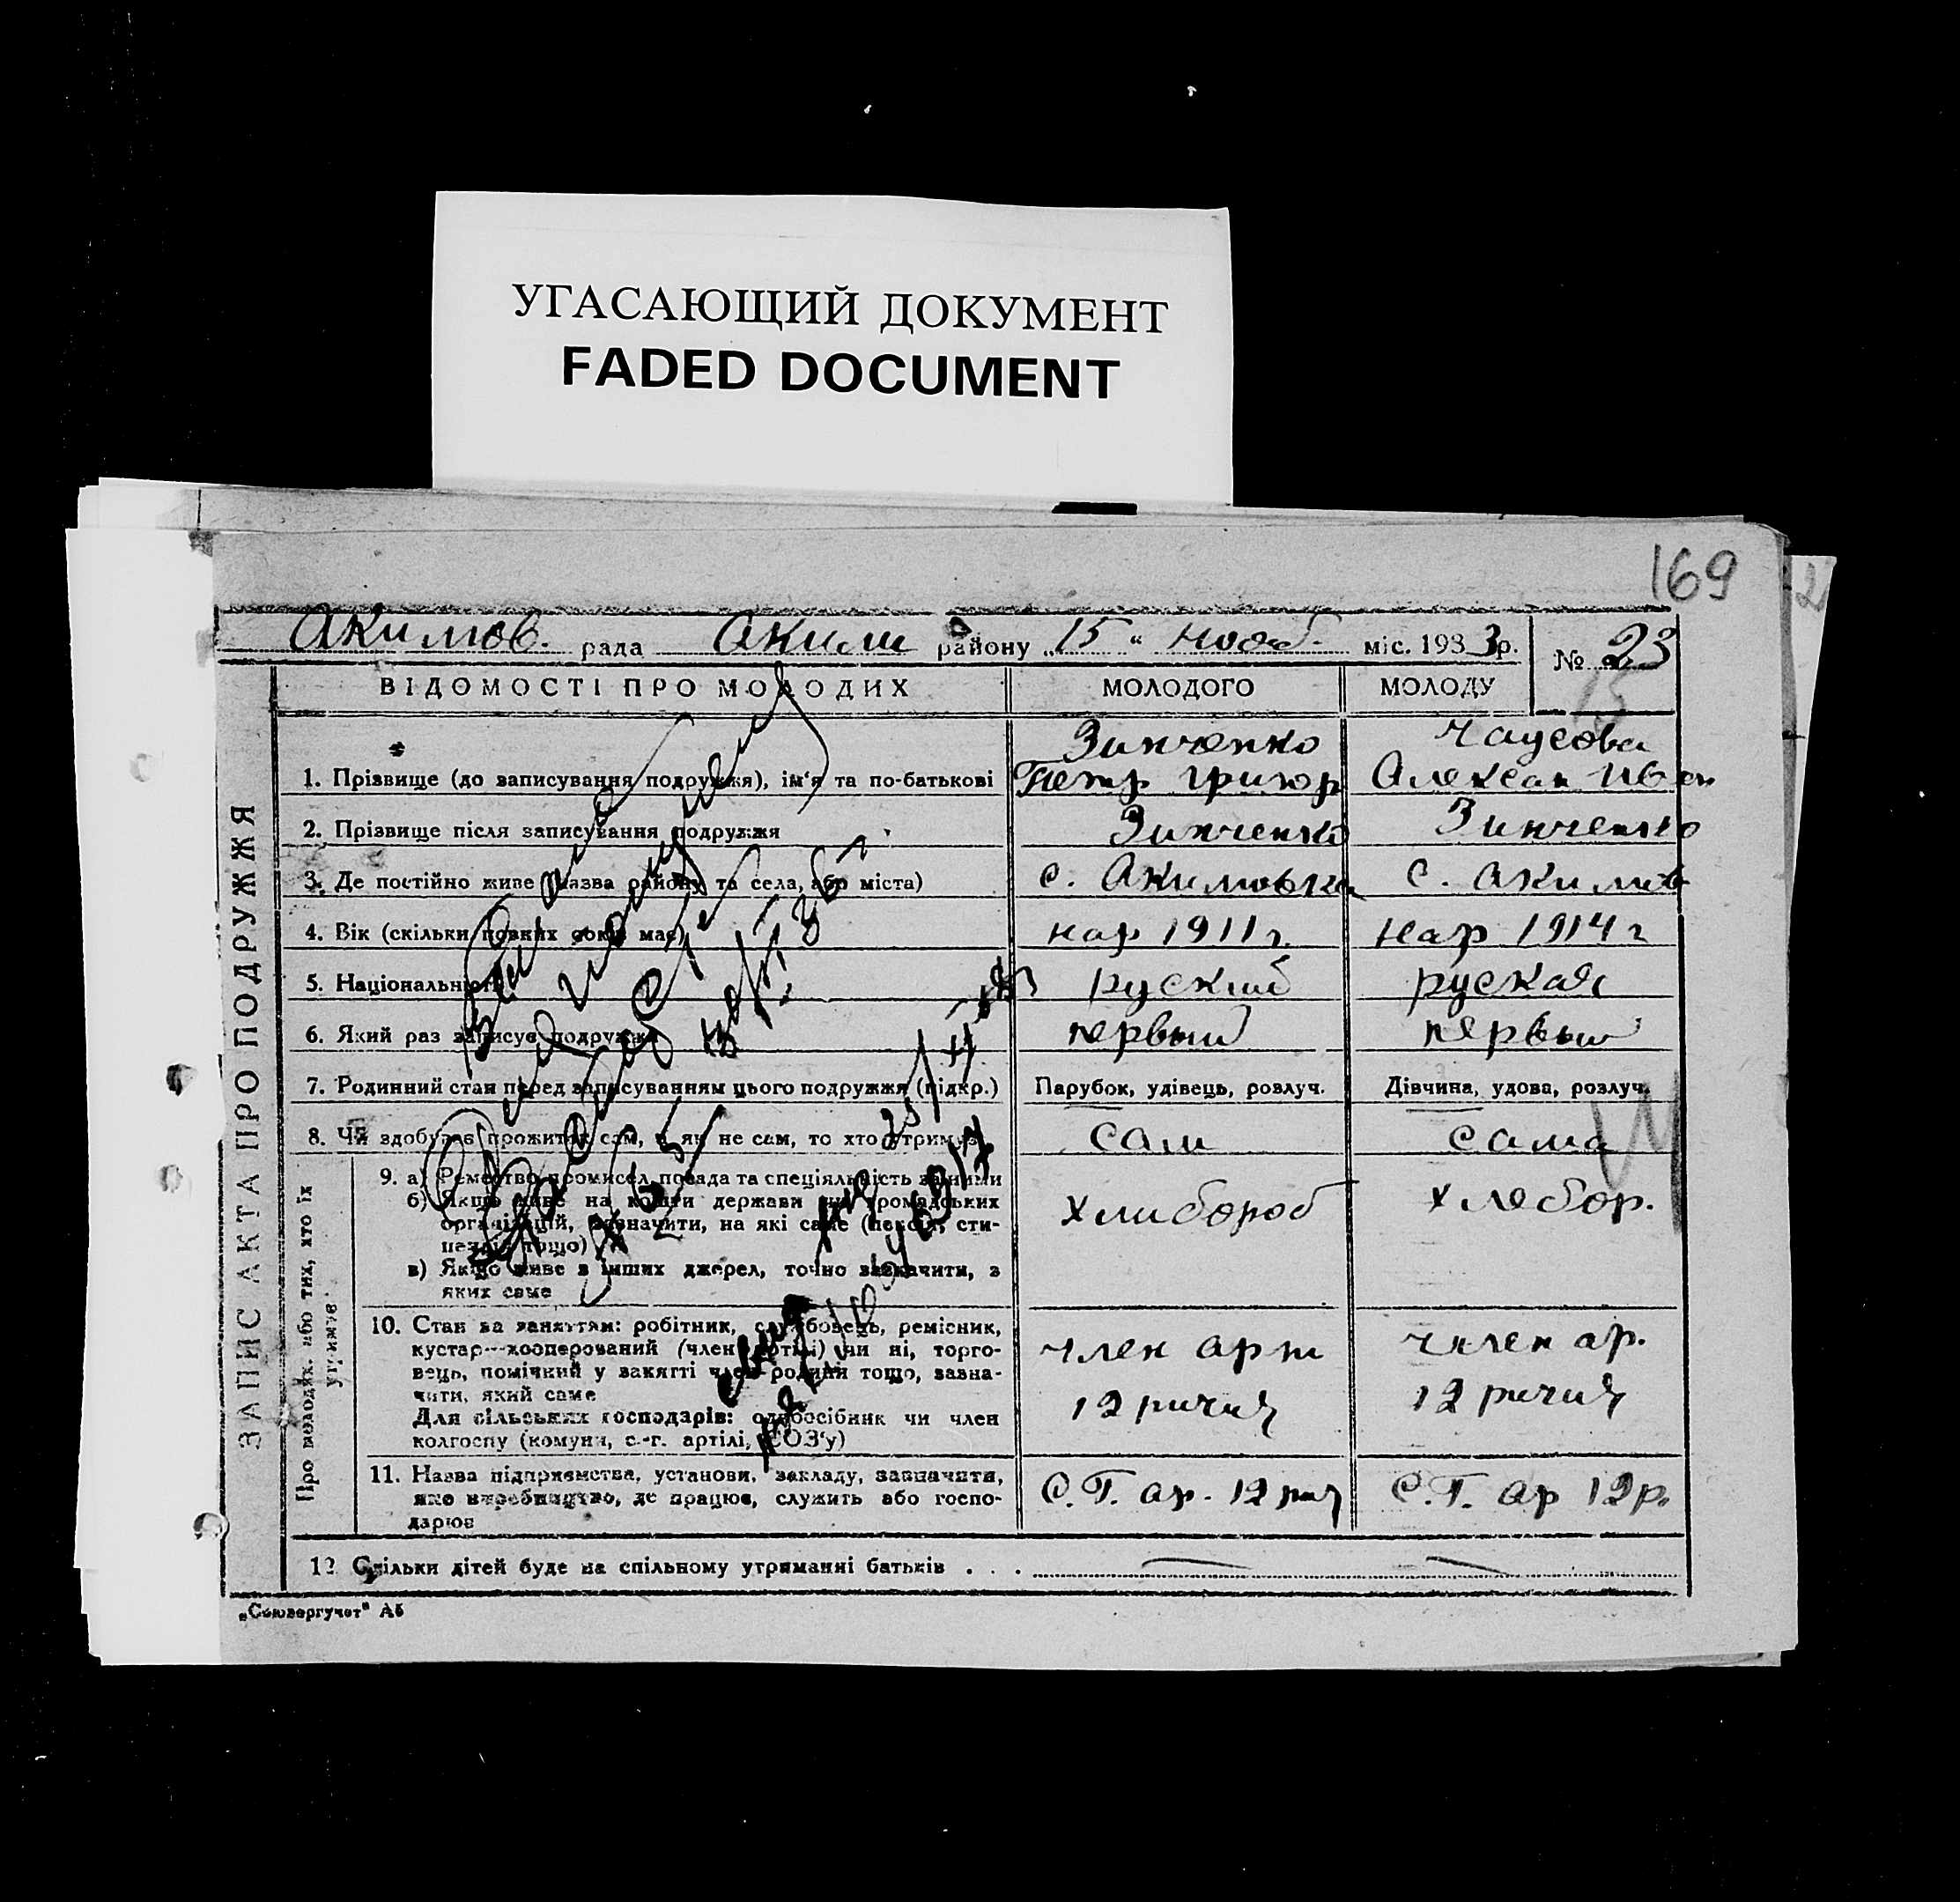 УГАСАЮЩИЙ ДОКУМЕНТ
FADED DOCUMENT
169
2
Акимов. рада Аким району „15" нояб. міс. 1933р. № 23
15
ВІДОМОСТІ ПРО МОЛОДИХ МОЛОДОГО МОЛОДУ
ЗАПИС АКТА ПРО ПОДРУЖЖЯ
Зинченко Чаусова
1. Прізвище (до записування подружжя), ім'я та по-батькові Петр Григор Алексан Иван
2. Прізвище після записування подружжя Зинченко Зинченко
3. Де постійно живе (назва району та села, або міста) с. Акимовка с. Акимов
4. Вік (скільки повних років має) нар 1911 г. нар 1914 г
5. Національність руский руская
6. Який раз записує подружжя первый первый
7. Родинний стан перед записуванням цього подружжя (підкр.) Парубок, удівець, розлуч. Дівчина, удова, розлуч.
8. Чи здобуває прожиток сам, а як не сам, то хто утримує сам сама
Про молодж. або тих, хто їх утримує
9. а) Ремество, промисел, посада та спеціяльність за ними
б) Якщо живе на кошти держави чи громадських
організацій, зазначити, на які саме (пенсія, сти-
пендія тощо) хлибороб хлебор.
в) Якщо живе з інших джерел, точно зазначити, з
яких саме
10. Стан за заняттям: робітник, службовець, ремісник,
кустар—кооперований (член артілі) чи ні, торго-
вець, помічний у занятті член родини тощо, зазна- член арт член ар.
чити, який саме
Для сільських господарів: одноосібник чи член 12 ричия 12 ричия
колгоспу (комуни, с.-г. артілі, СОЗ'у)
11. Назва підприємства, установи, закладу, зазначити,
яке виробництво, де працює, служить або госпо- С.Г. ар. 12 рич С.Г. ар 12 р.
дарює
12. Скільки дітей буде на спільному утриманні батьків . . .
„Союзоргучет" А5